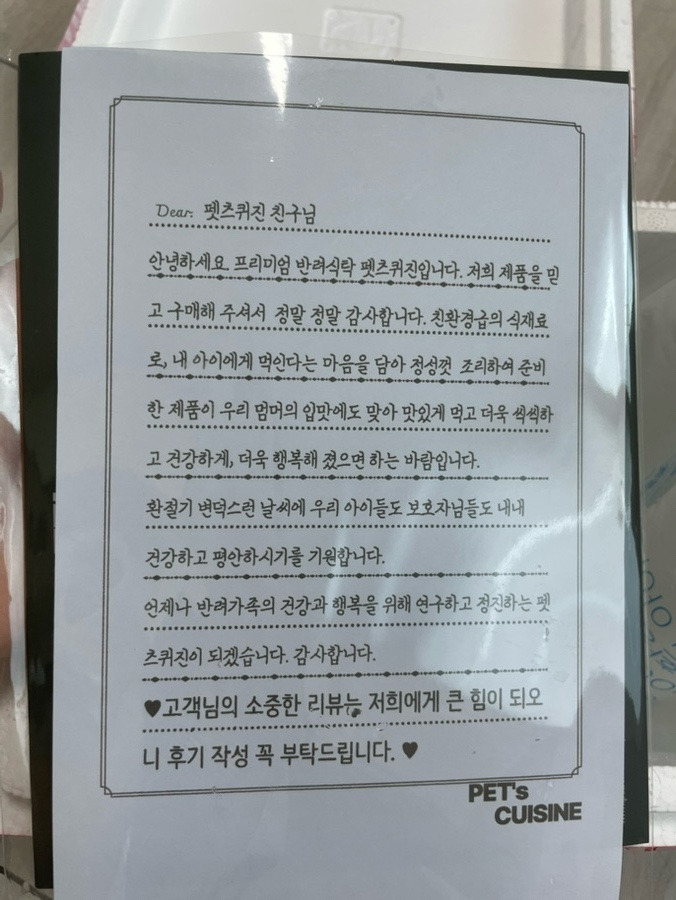 Dear. 펫츠퀴진 친구님
안녕하세요. 프리미엄 반려식탁 펫츠퀴진입니다. 저희 제품을 믿
고 구매해 주셔서 정말 정말 감사합니다. 친환경급의 식재료
로, 내 아이에게 먹인다는 마음을 담아 정성껏 조리하여 준비
한 제품이 우리 멈머의 입맛에도 맞아 맛있게 먹고 더욱 씩씩하
고 건강하게, 더욱 행복해 졌으면 하는 바람입니다.
환절기 변덕스런 날씨에 우리 아이들도 보호자님들도 내내
건강하고 평안하시기를 기원합니다.
언제나 반려가족의 건강과 행복을 위해 연구하고 정진하는 펫
츠퀴진이 되겠습니다. 감사합니다.
♥고객님의 소중한 리뷰는 저희에게 큰 힘이 되오
니 후기 작성 꼭 부탁드립니다. ♥
PET's
CUISINE